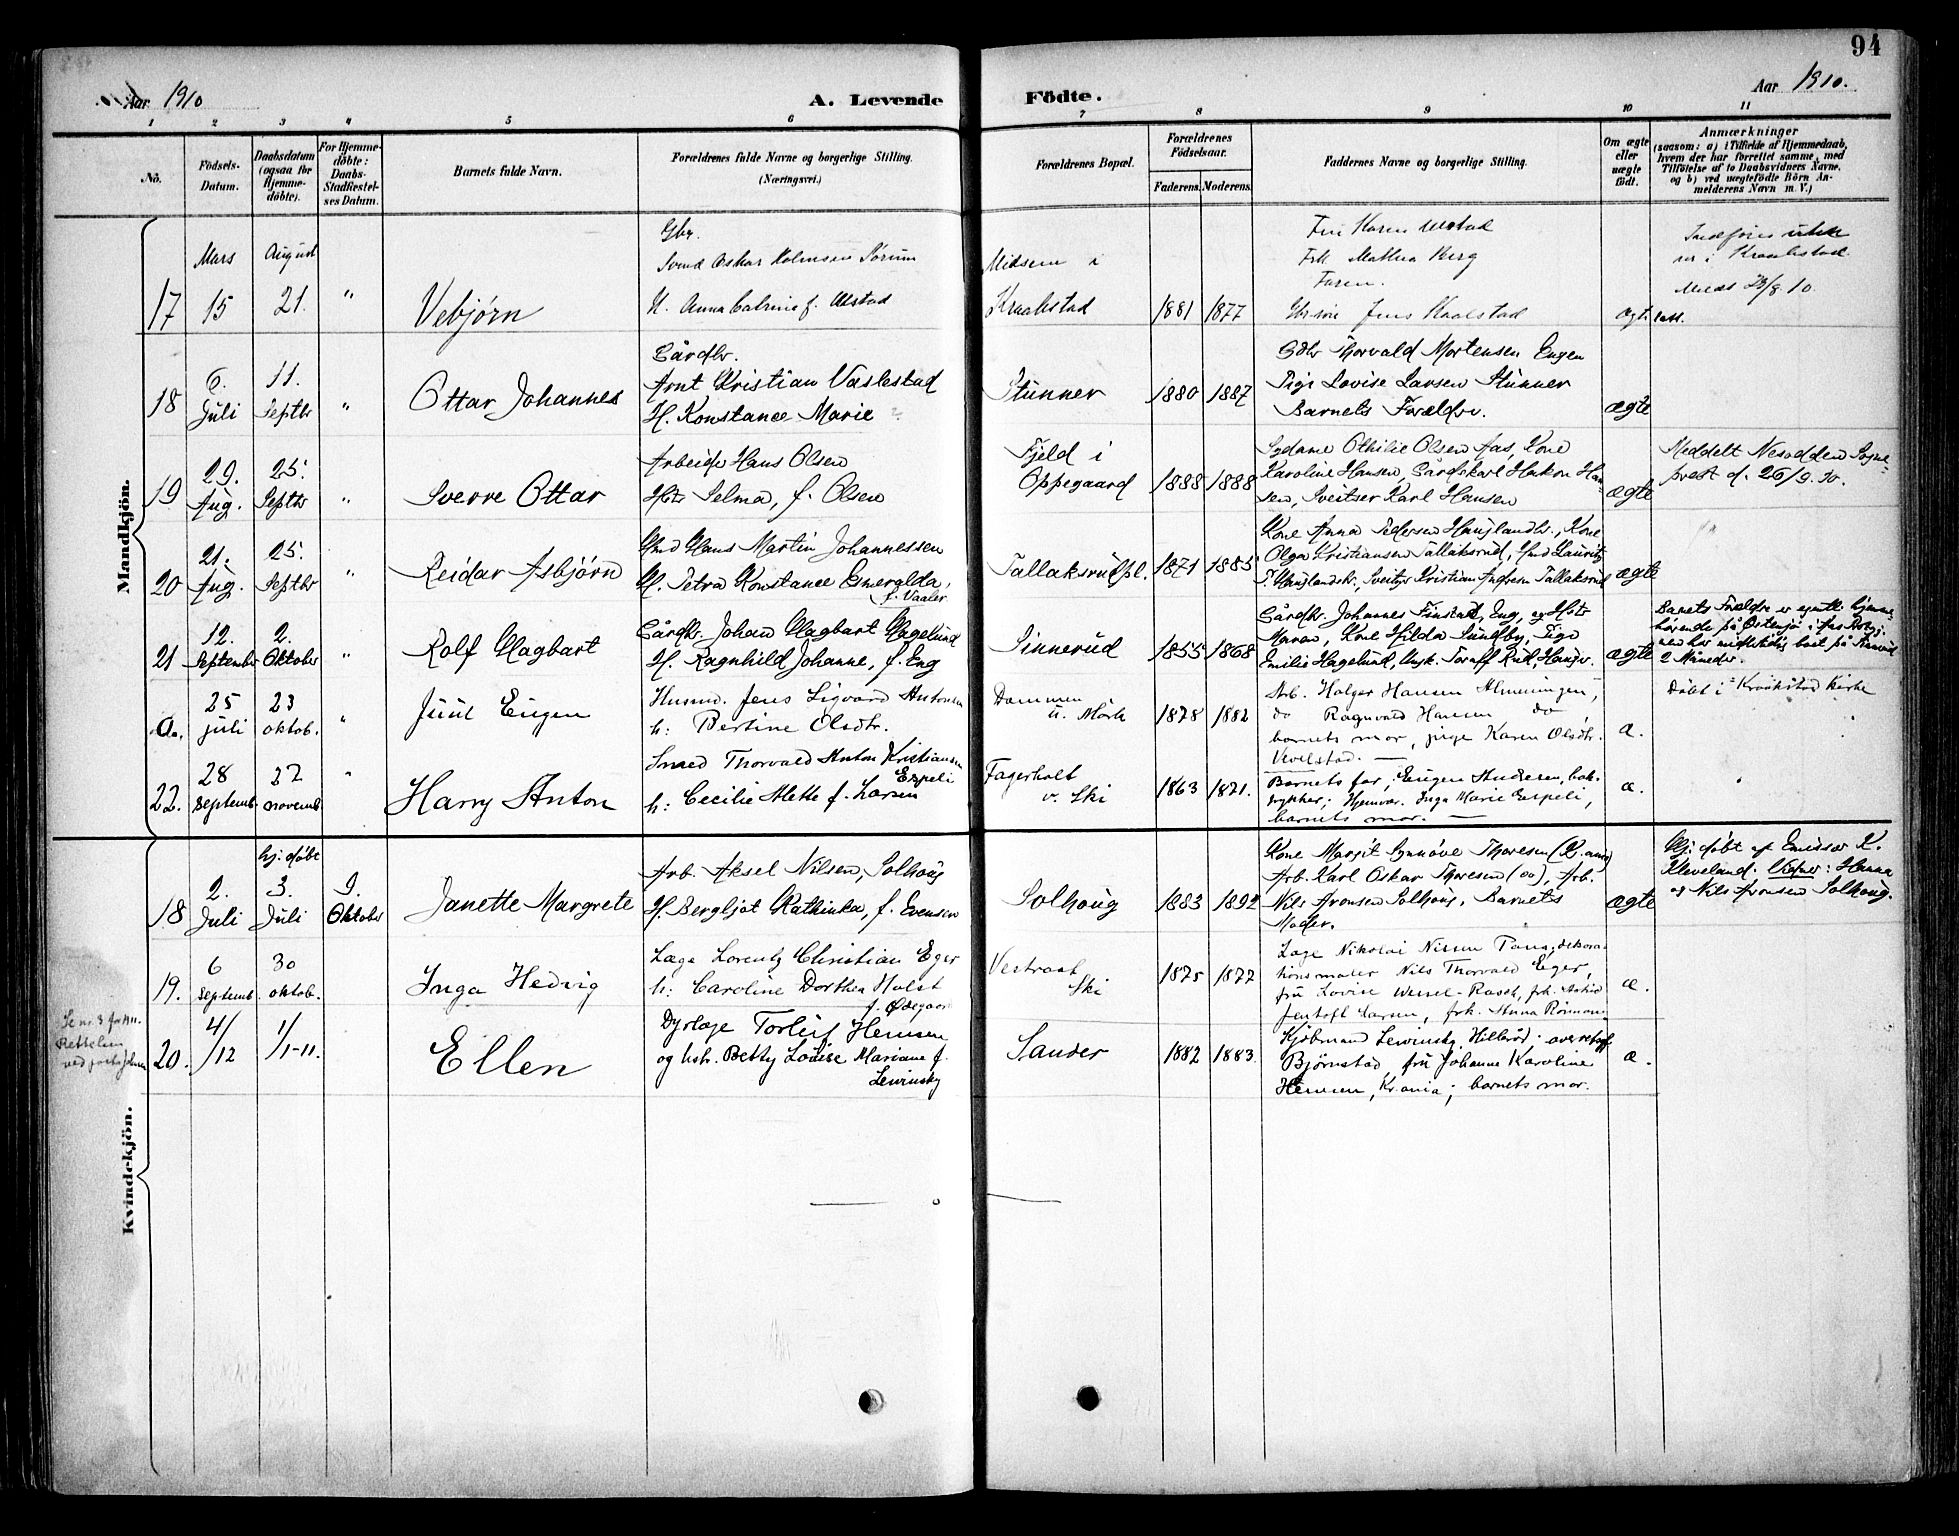 94
Aar 1910
A. Levende Födte.
Aar 1910.
1 2 3 4 5 6 7 8 9 10 11
No.
Födsels-Datum.
Daabsdatum (ogsaa for Hjemme-döbte).
For Hjemme-döbte: Daabs-Stadfæstel-ses Datum.
Barnets fulde Navn.
Forældrenes fulde Navne og borgerlige Stilling.
(Næringsvei.)
Forældrenes Bopæl.
Forældrenes Födselsaar.
Faderens. Moderens.
Faddernes Navne og borgerlige Stilling.
Om ægte eller uægte födt.
Anmærkninger
(saasom: a) i Tilfælde af Hjemmedaab,
hvem der har forrettet samme, med
Tilföielse af to Daabsvidners Navne,
og b) ved uægtefödte Börn An-
melderens Navn m. V.)
Mandkjön.
17
Mars 15
August 21.
"
Vebjørn
Gbr.
Svend Oskar Holmsen Sørum
H. Anna Catrine f. Ulstad
i
Kraakstad
1881
1877
Frk Mathea Berg
Faren.
Jens
i Kraakstad
23/8 10.
18
6. Juli
11. Septbr
"
Ottar Johannes
Gårdbr.
Arnt Kristian Vaslestad
H. Konstance Marie
Stunner
1880
1887
Gdbr Thorvald Mortensen Engen
Pige Lovise Larsen Stunner
Barnets Forældre.
ægte
19
29. Aug.
25. Septbr
"
Sverre Ottar
Arbeider Hans Olsen
Hstr Selma, f. Olsen
Fjeld i
Oppegaard
1888
1888
Sydame Othilie Olsen Aas, Kone
Karoline Hansen, Gårdskarl Hakon Han-
sen, Sveitser Karl Hansen
ægte
Meddelt Nesodden Sogne-
prest d. 26/9. 10.
20
21. Aug.
25. Septbr
"
Reidar Asbjørn
Hans Martin Johannessen
H. Petra Konstance Esmeralda,
f. Vaaler
Tallaksrudpl.
1871
1885
Kone Anna Pedersen Kone
Olga Kristiansen Tallaksrud, Lauritz
Kristian Andresen Tallaksrud
ægte
21
12. September
2. Oktober
"
Rolf Hagbart
Gårdbr. Johan Hagbart Hagelund
H. Ragnhild Johanne, f. Eng
Sinnerud
1855
1868
Gårdbr. Johannes Finstad, Eng, og Hstr
Maren, Kone Hilda Sundby, Pige
Emilie Hagelund, Ungk. Toralf Rud,
ægte
Barnets Forældre er hjemme-
hørende på Østensjø i
men har midlertidig boet på Sinnerud
2 Måneder.
a.
25 juli
23 oktob.
"
Juul Eugen
Husmd. Jens Sigvard Antonsen
h: Bertine Olsdtr.
Dammen
u. Mørk
1878
1882
Arb. Holger Hansen Almeningen,
do Ragnvald Hansen do,
barnets mor, pige Karen Olsdtr.
Vevelstad.
æ.
Døbt i Kraakstad kirke
22.
28 septemb.
27 novemb.
"
Harry Anton
Smed Thorvald Anton Kristiansen
Espeli
h: Cecilie Alette f. Larsen
Fagerholt
v. Ski
1863
1871.
Barnets far, Eugen Andersen, bok-
trykker; Hjemvær. Inga Marie Espeli,
barnets mor.
æ.
Kvindekjön.
18
2. Juli
hj. døbt 3. Juli
9. Oktober
Janette Margrete
Arb. Aksel Nilsen, Solhoug
H. Bergljot Kathinka, f. Evensen
Solhoug
1883
1892
Kone Margit Synnøve Thoresen
Arb. Karl Oskar Thoresen Arb.
Nils Aronsen Solhoug. Barnets
Moder.
ægte
Hj. døbt af Emissær K.
Kleveland. Vidner: Hanna
og Nils Aronsen Solhoug.
19.
6 septemb.
30 oktob.
Inga Hedvig
Læge Lorentz Christian Eger
h: Caroline Dorthea Holst
f. Ødegaard
Vestraat
Ski
1875
1877
Læge Nikolai Nissen Paus, dekora-
tionsmaler Nils Thorvald Eger,
fru Lovise Wessel-Rasch, frk. Astrid
Jentoft Larsen, frk. Anna
æ.
Se nr. 3 for 1911.
Rettelsen
20.
4/12
1/1-11.
Ellen
Dyrlæge Torleif Hemsen
og hstr. Betty Louise Mariane f.
Lewinsky
Sander
1882
1883.
Kjøbmand Lewinsky, Hillerød; overretssf.
Bjørnstad, fru Johanne Karoline
Hemsen, Kr.ania; barnets mor.
æ.